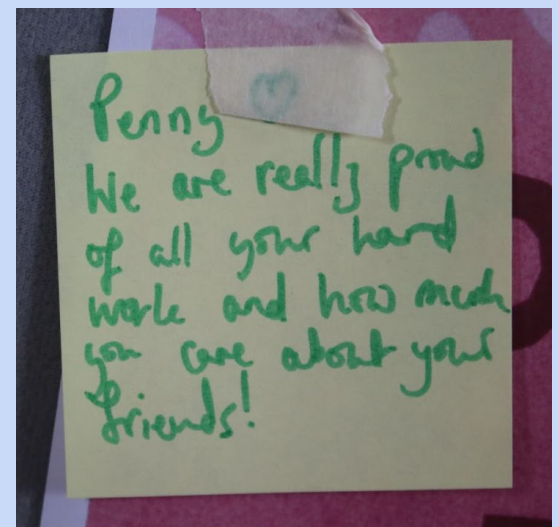 Penny ♡
We are really proud
of all your hard
work and how much
you care about your
friends!